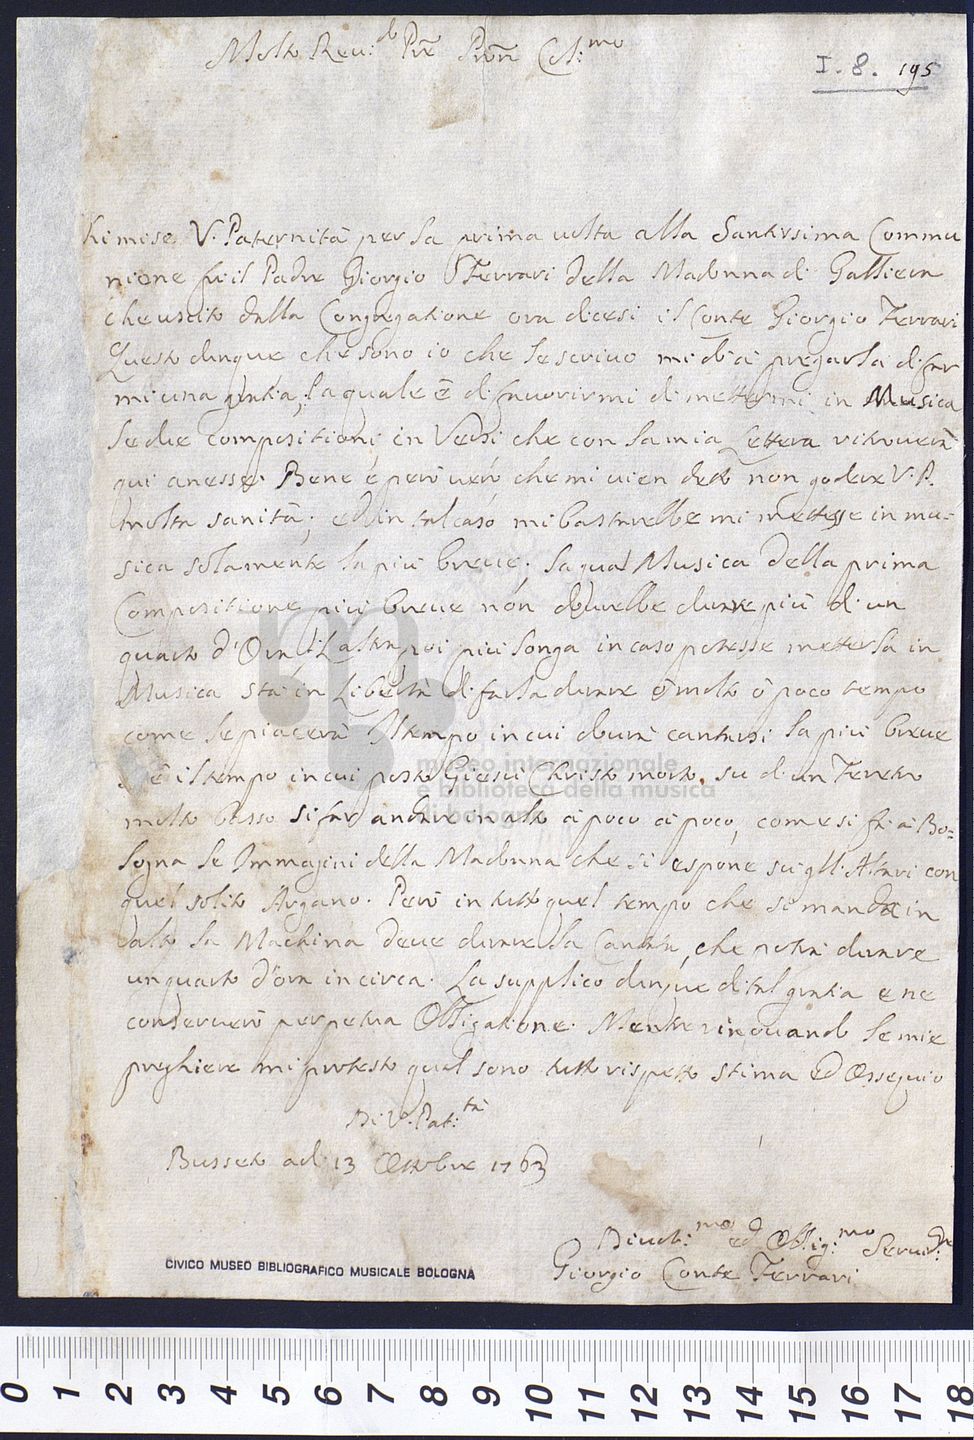 Molto Reu:do Pre Pron Col:mo
I. 8. 195
hi mise V. Paternità per la prima volta alla Santissima Commu
nione fu il Padre Giorgio Ferrari della Madonna di Galliera
che uscito dalla Congregatione ora dicesi il Conte Giorgio Ferrari
Questo dunque che sono io che le scrivo mi dò à pregarla di far
mi una gratia, la quale è di favorirmi di mettermi in Musica
le due compositioni in Versi che con la mia Lettera ritroverà
qui anesse. Bene è però vero che mi vien detto non godere V. P.
molta sanità; ed in tal caso mi bastarebbe mi mettesse in mu=
sica solamente la più breve. la qual Musica della prima
Compositione più breve non dovrebbe durare più di un
quarto d'Ora, L'altra poi più longa in caso potesse metterla in
Musica stà in Libertà di farla durare ò molto ò poco tempo
come le piacerà Il tempo in cui dovrà cantarsi la più breve
è il tempo in cui posto Giesù Christo morto su di un Feretro
molto basso si fa andare in alto à poco à poco, come si fà à Bo=
logna le Immagini della Madonna che si espone sù gli Altari con
quel solito Argano. Però in tutto quel tempo che si manda in
alto la Machina deve durare la Cantata, che potrà durare
un quarto d'ora in circa. La supplico dunque di tal gratia e ne
conserverò perpetua Obligatione. Mentre rinovando le mie
preghiere mi protesto qual sono tutto rispetto stima ed Ossequio
Di V. Pat:tà
Busseto adi 13 Ottobre 1763
Divot:mo ed Oblig:mo Servid:re
Giorgio Conte Ferrari
CIVICO MUSEO BIBLIOGRAFICO MUSICALE BOLOGNA
museo internazionale
e biblioteca della musica
di bologna
0 1 2 3 4 5 6 7 8 9 10 11 12 13 14 15 16 17 18